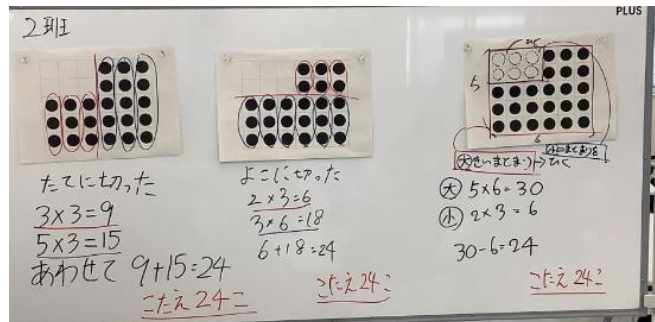 PLUS
2班
たてに切った
3×3=9
5×3=15
あわせて 9+15=24
こたえ24こ
よこに切った
2×3=6
3×6=18
6+18=24
こたえ24こ
5
6
大きいまとまり→ひく
大 5×6=30
小 2×3=6
30-6=24
こたえ24こ